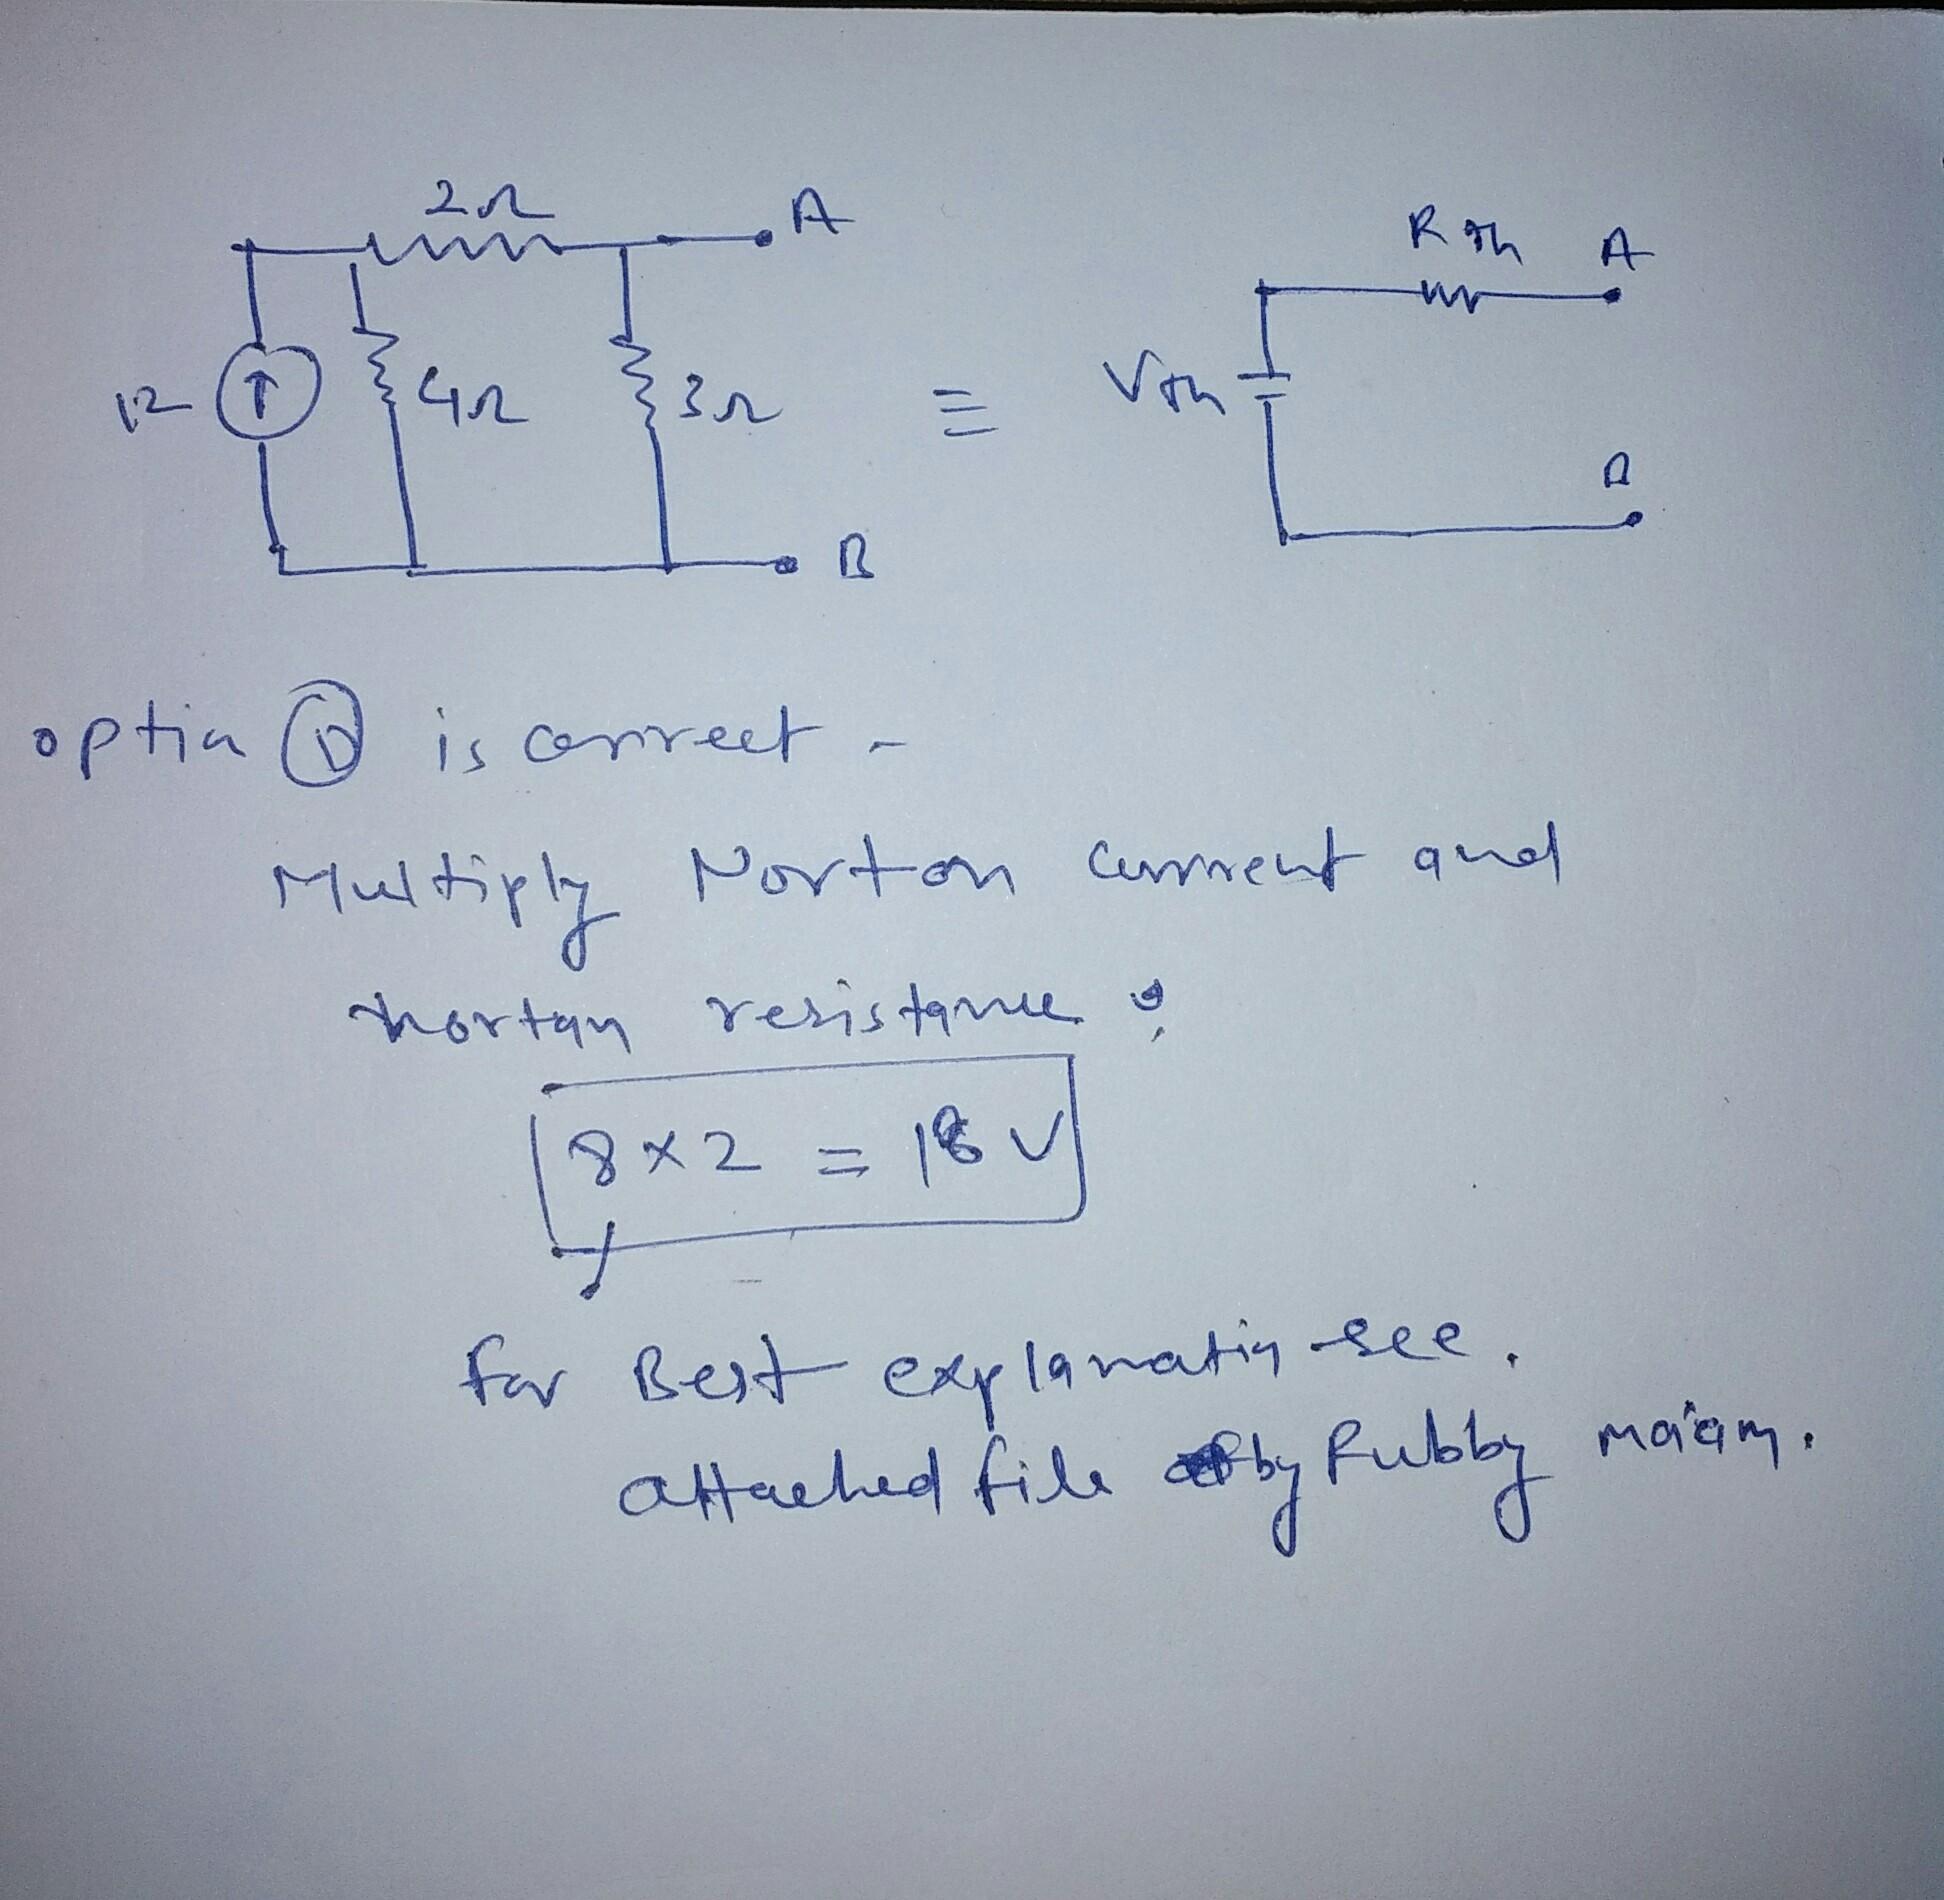 2Ω
A
12
4Ω
3Ω
B
=
Rth
A
Vth
B
option D is correct -
Multiply Norton current and
nortan resistance
8 x 2 = 16 V
for Best explanatin see.
attached file by Rubby ma'am.